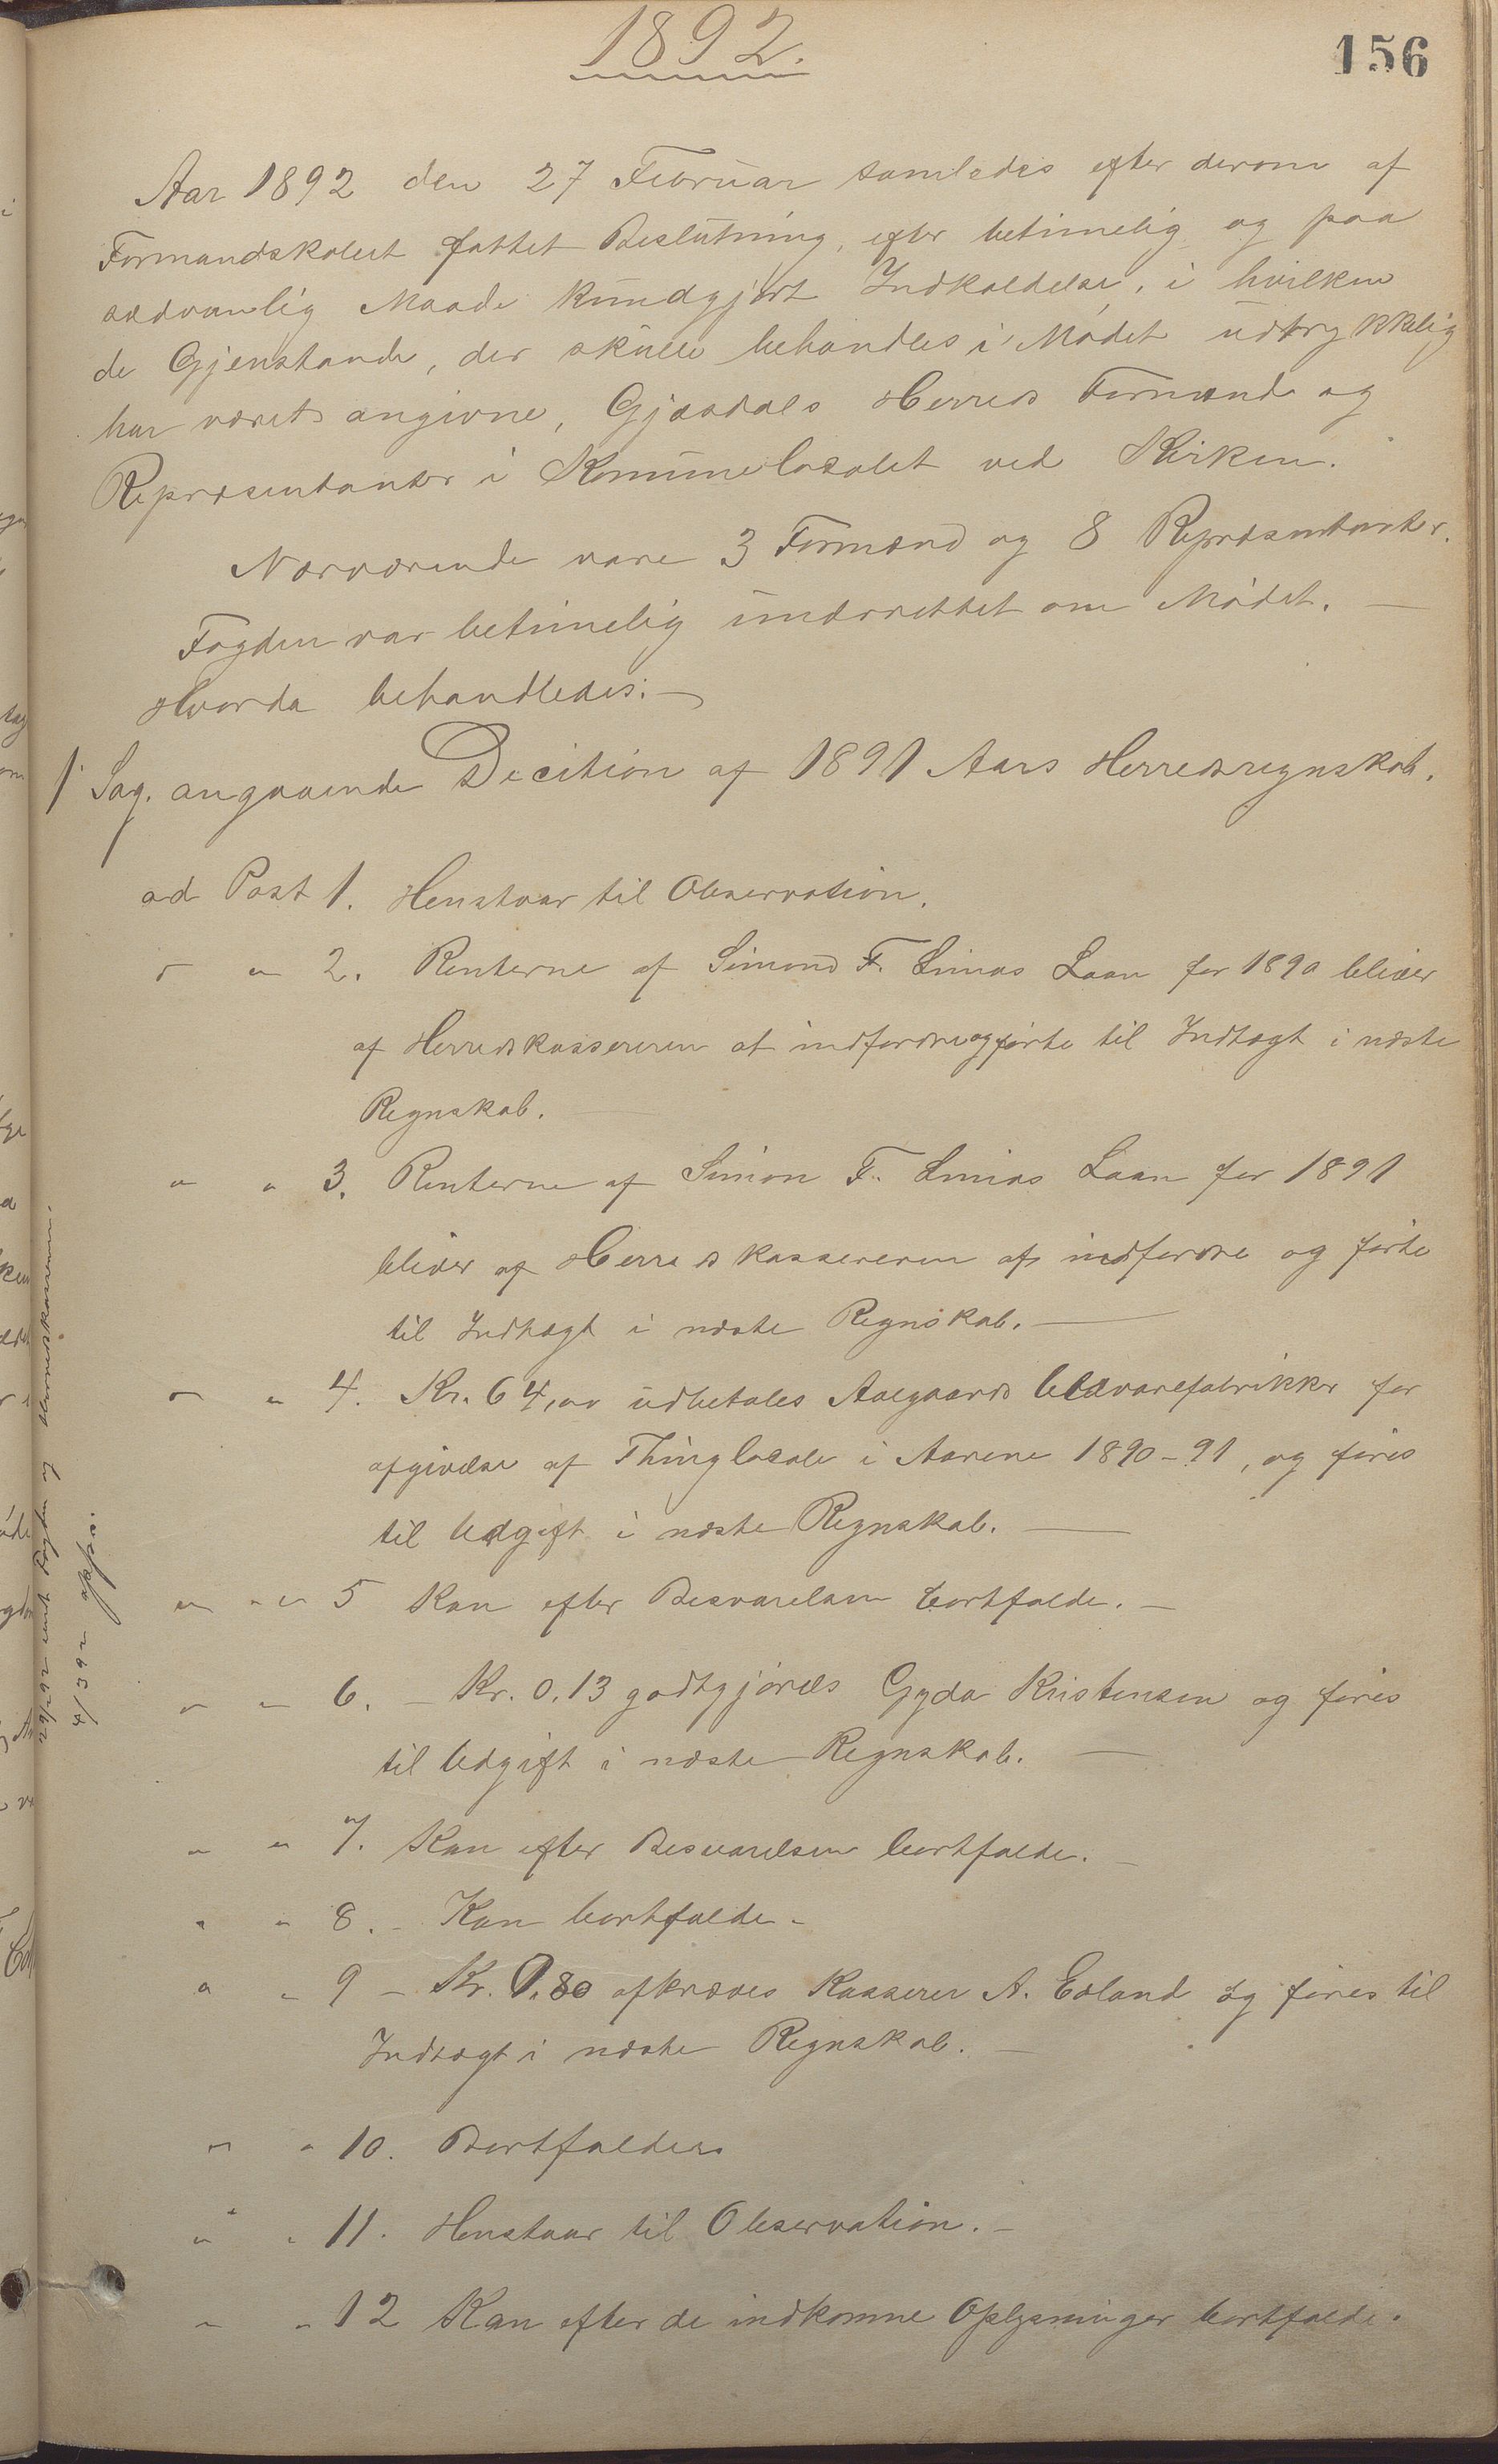 1892.
156
Aar 1892 den 27 Februar samledes efter derom af
Formandskabet fattet Beslutning, efter betimelig og paa
sædvanlig Maade kundgjort Indkaldelse, i hvilken
de Gjenstande, der skulle behandles i Mødet udtrykkelig
har været angivne, Gjæsdals Herreds Formænd og
Repræsentanter i Kommunelocalet ved Kirken.
Nærværende vare 3 Formænd og 8 Repræsentanter.
Fogden var betimelig underrettet om Mødet. —
Hvorda behandledes: —
1 Sag. angaaende Decition af 1891 Aars Herredsregnskab.
ad Post 1. Henstaar til Observation.
" " 2. Renterne af Simond F. Limas Laan for 1890 bliver
af Herredskassereren at indfordre og førte til Indtægt i næste
Regnskab. —
" " 3. Renterne af Simon F. Limas Laan for 1891
bliver af Herredskassereren at indfordre og førte
til Indtægt i næste Regnskab. —
" " 4. Kr. 64,00 udbetales Aalgaards Uldvarefabrikker for
afgivelse af Thinglocale i Aarene 1890-91, og føres
til Udgift i næste Regnskab. —
" " 5 Kan efter Besvarelsen bortfalde. —
" " 6. — Kr. 0.13 godtgjøres Gyda Kristensen og føres
til Udgift i næste Regnskab. —
" " 7. Kan efter Besvarelsen bortfalde. —
" " 8. - Kan bortfalde -
" " 9 - Kr. 0.80 afkræves Kasserer A. Edland og føres til
Indtægt i næste Regnskab. —
" " 10. Bortfalder
" " 11. Henstaar til Observation. -
" " 12 Kan efter de indkomne Oplysninger bortfalde.
29/2 92 sendt Fogden og Herredskasseren.
4/3 92